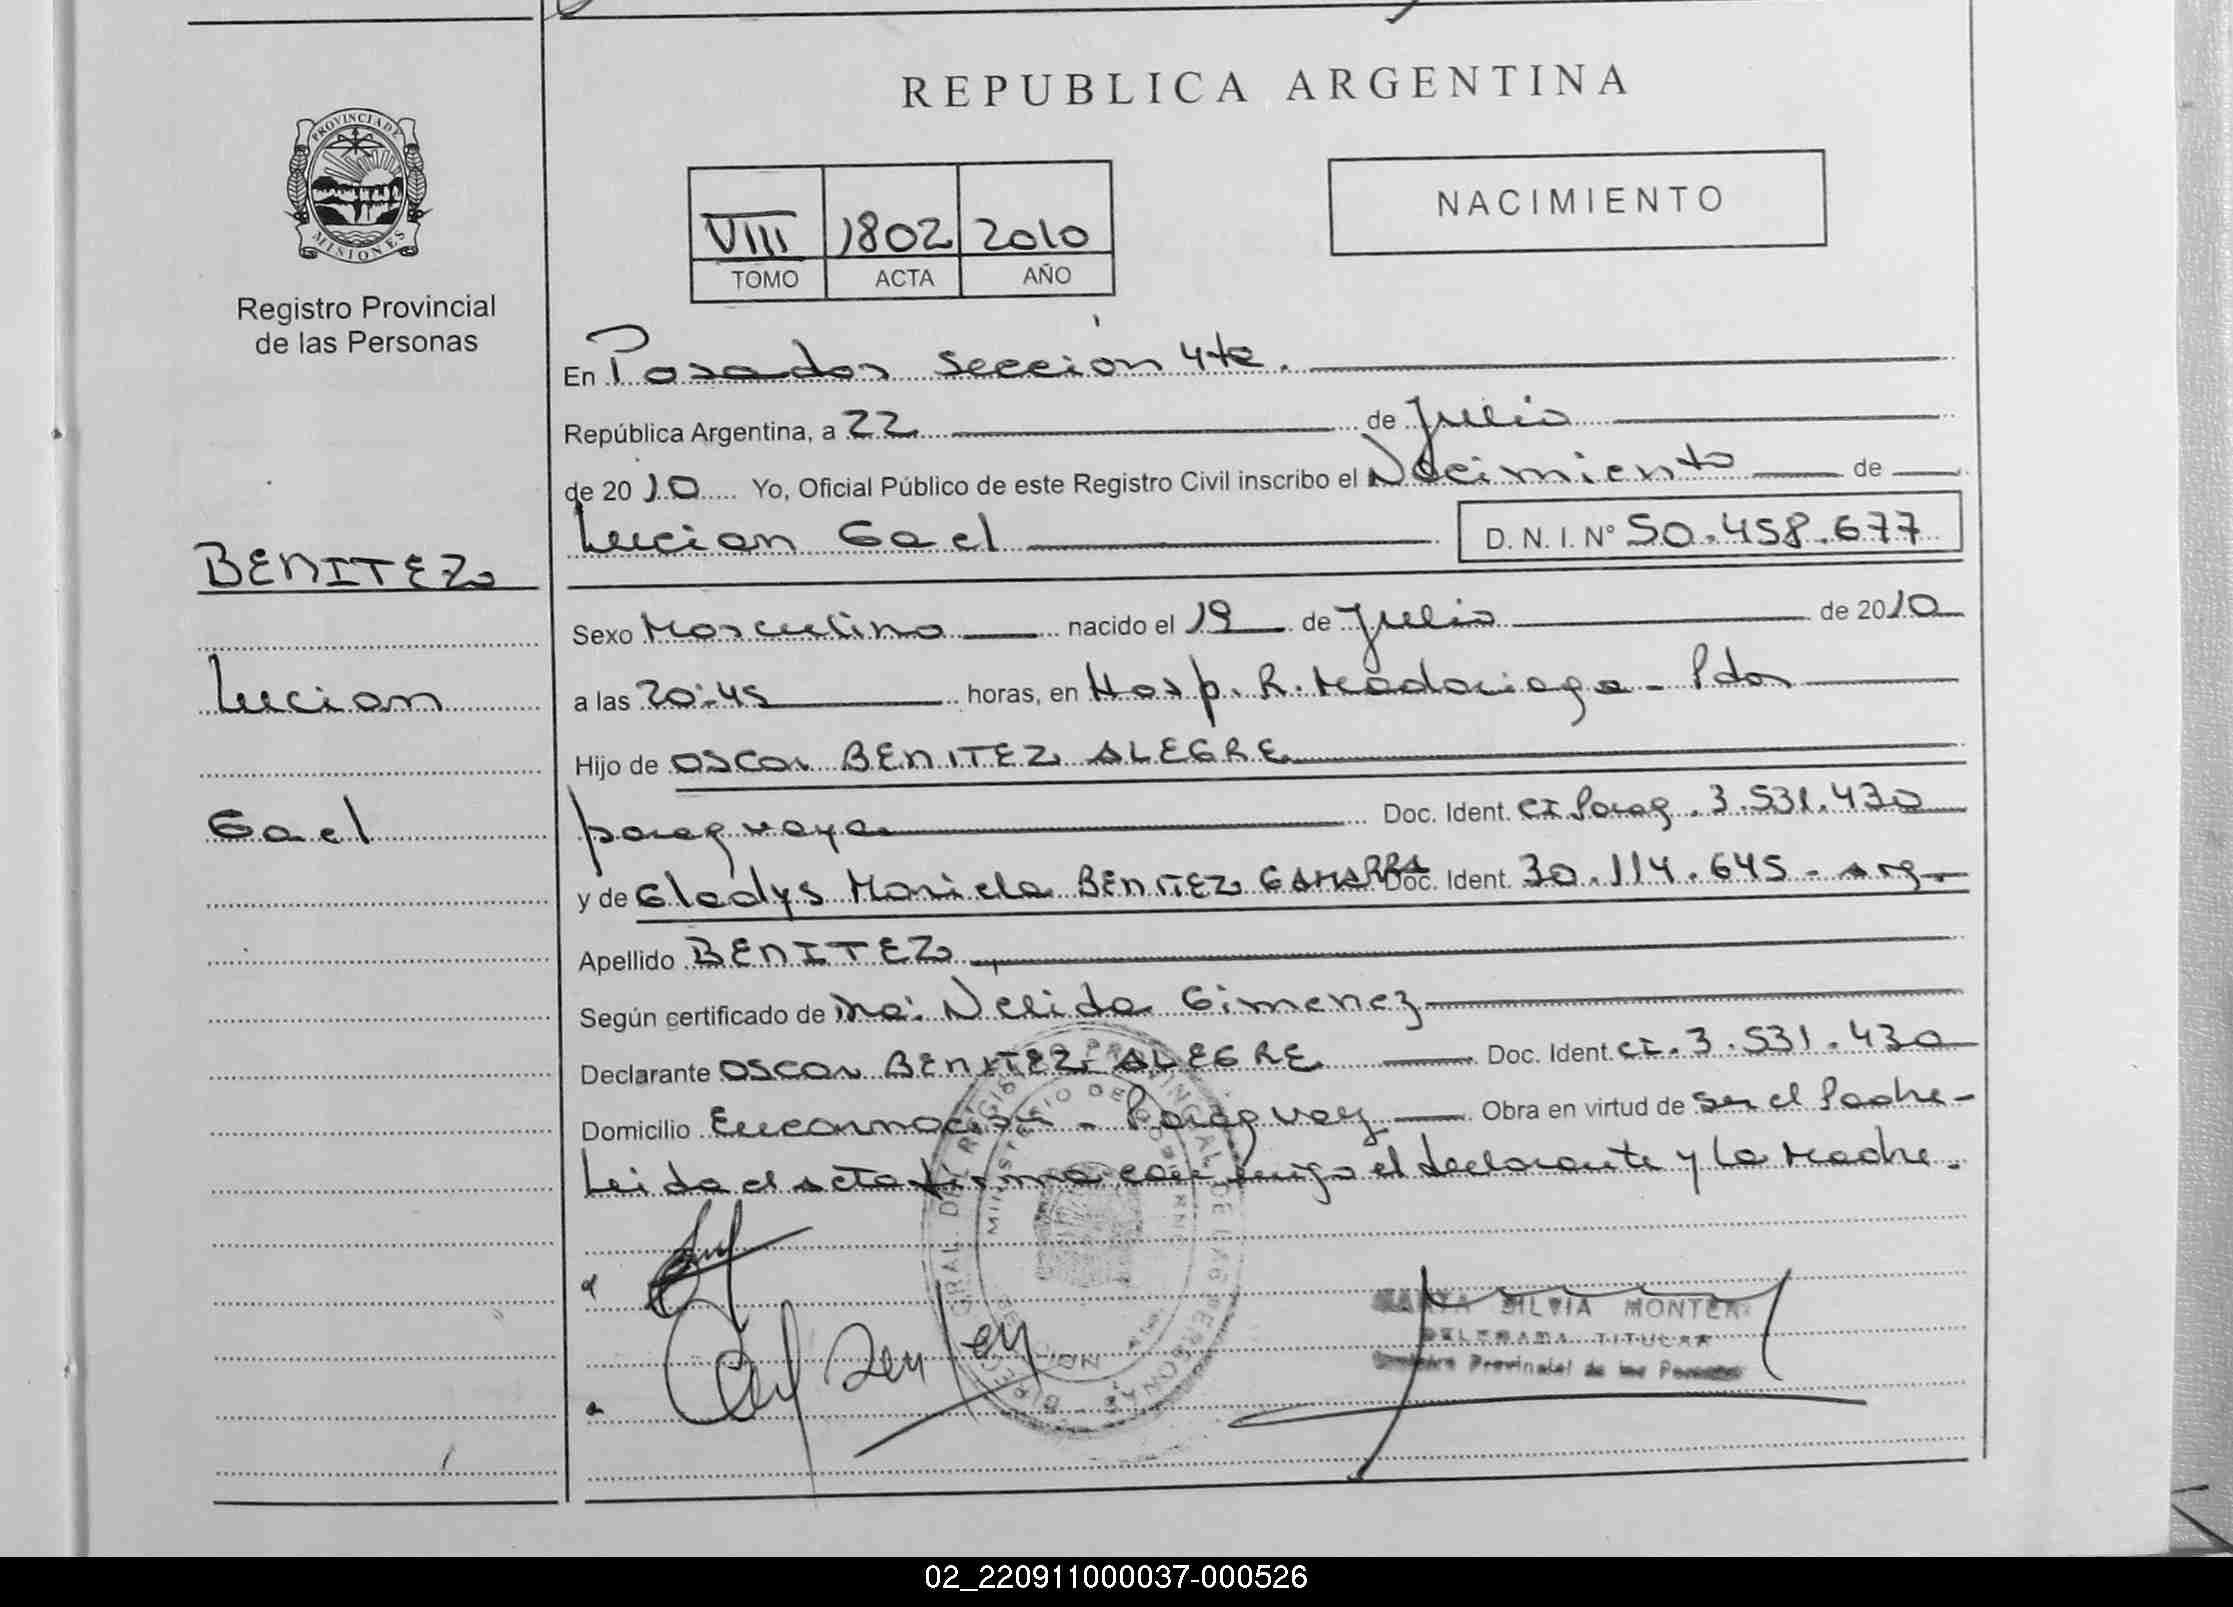 REPUBLICA ARGENTINA
PROVINCIA DE
MISIONES
Registro Provincial
de las Personas
VIII 1802 2010
TOMO ACTA AÑO
NACIMIENTO
En Posadas sección 4ta.
República Argentina, a 22 de Julio
de 2010 Yo, Oficial Público de este Registro Civil inscribo el Nacimiento de
Lucian Gael D. N. I. N° 50.458.677
BENITEZ
Lucian
Gael
Sexo Masculino nacido el 19 de Julio de 2010
a las 20:45 horas, en Hosp. R. Madariaga - Pdas
Hijo de Oscar BENITEZ ALEGRE
paraguaya Doc. Ident. CI Parag. 3.531.430
y de Gladys Mariela BENITEZ GAMARRA Doc. Ident. 30.114.645 - arg.
Apellido BENITEZ
Según certificado de Ma: Nelida Gimenez
Declarante Oscar BENITEZ ALEGRE Doc. Ident. CI. 3.531.430
Domicilio Encarnación - Paraguay Obra en virtud de ser el Padre -
Leida el acta firma conmigo el declarante y la Madre.
SILVIA MONTER
TITULAR
Provincial de las Personas
02_220911000037-000526